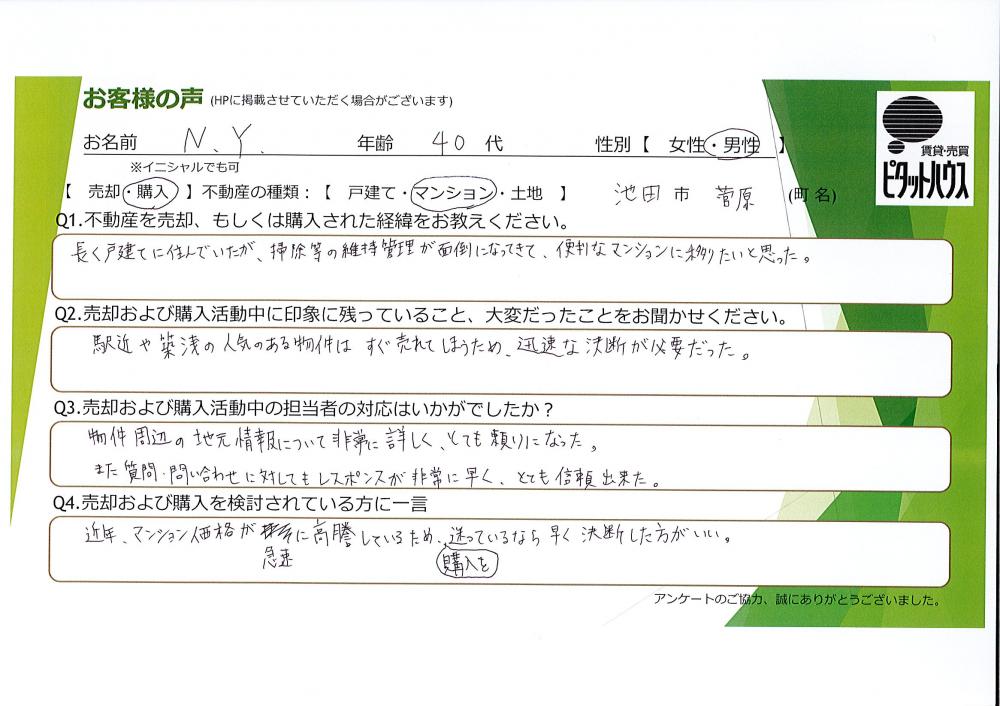 お客様の声 (HPに掲載させていただく場合がございます)
お名前 N.Y. 年齢 40 代 性別【 女性・男性 】
※イニシャルでも可
賃貸・売買
ピタットハウス
【 売却・購入 】不動産の種類:【 戸建て・マンション・土地 】 池田 市 菅原 (町名)
Q1.不動産を売却、もしくは購入された経緯をお教えください。
長く戸建てに住んでいたが、掃除等の維持管理が面倒になってきて、便利なマンションに移りたいと思った。
Q2.売却および購入活動中に印象に残っていること、大変だったことをお聞かせください。
駅近や築浅の人気のある物件はすぐ売れてしまうため、迅速な決断が必要だった。
Q3.売却および購入活動中の担当者の対応はいかがでしたか?
物件周辺の地元情報について非常に詳しく、とても頼りになった。
また質問・問い合わせに対してもレスポンスが非常に早く、とても信頼出来た。
Q4.売却および購入を検討されている方に一言
近年、マンション価格が に高騰しているため、迷っているなら早く決断した方がいい。
急速 購入を
アンケートのご協力、誠にありがとうございました。